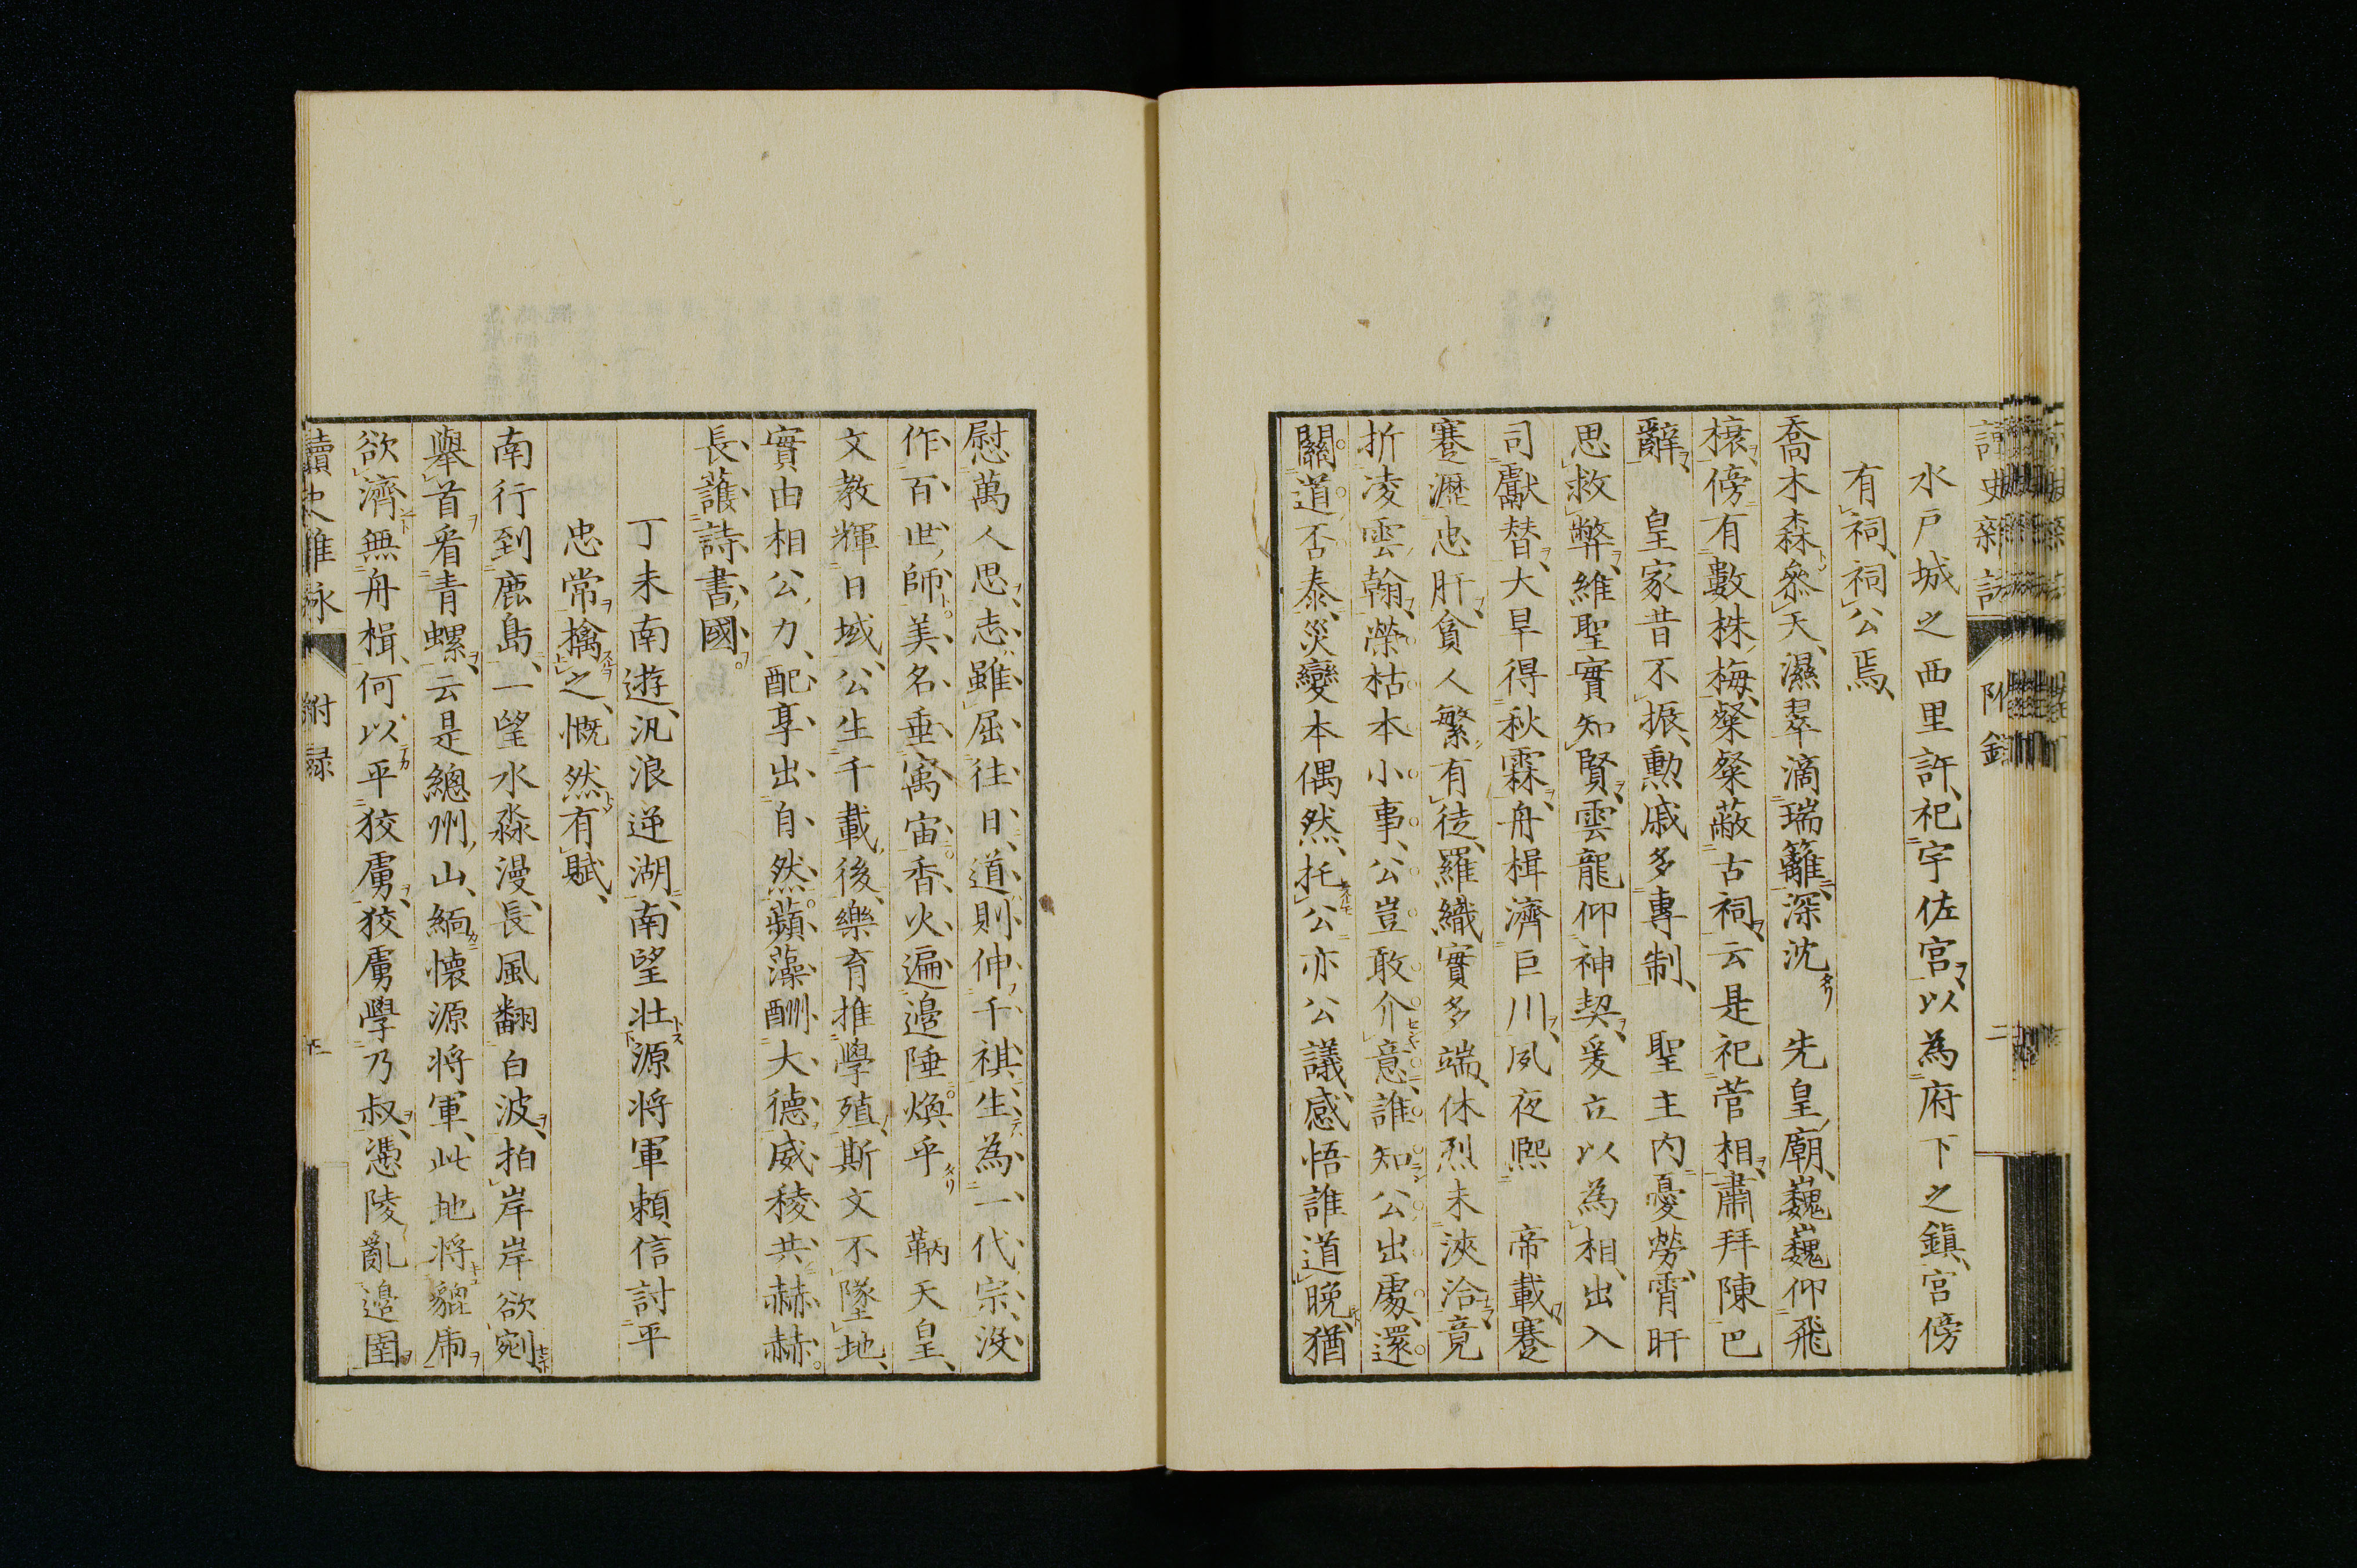 水戸城之西里許祀宇佐宮以為府下之鎮宮傍
有祠祠公焉
喬木森參天濕翠滴瑞籬深沈　先皇廟巍巍仰飛
榱傍有數株梅粲粲蔽古祠云是祀菅相肅拜陳巴
辭　皇家昔不振勲戚多專制　聖主内憂勞宵旰
思救弊維聖實知賢雲龍仰神契爰立以為相出入
司獻替大旱得秋霖舟楫濟巨川夙夜熙　帝載蹇
蹇瀝忠肝貪人繁有徒羅織實多端休烈未浹洽竟
折凌雲翰榮枯本小事公豈敢介意誰知公出處還
關道否泰災變本偶然托公亦公議感悟誰道晩猶
慰萬人思志雖屈往日道則伸千祺生為一代宗沒
作百世師美名垂寓宙香火遍邊陲煥乎　鞆天皇
文教輝日域公生千載後樂育推學殖斯文不墜地
實由相公力配享出自然蘋藻酬大德威稜共赫赫
長護詩書國
丁未南遊汎浪逆湖南望壮源将軍頼信討平
忠常擒之慨然有賦
南行到鹿島一望水淼漫長風翻白波拍岸岸欲剜
擧首看青螺云是總州山緬懷源将軍此地将貔乕
欲濟無舟楫何以平狡虜狡虜學乃叔憑陵亂邊圉
讀史雜咏　附録